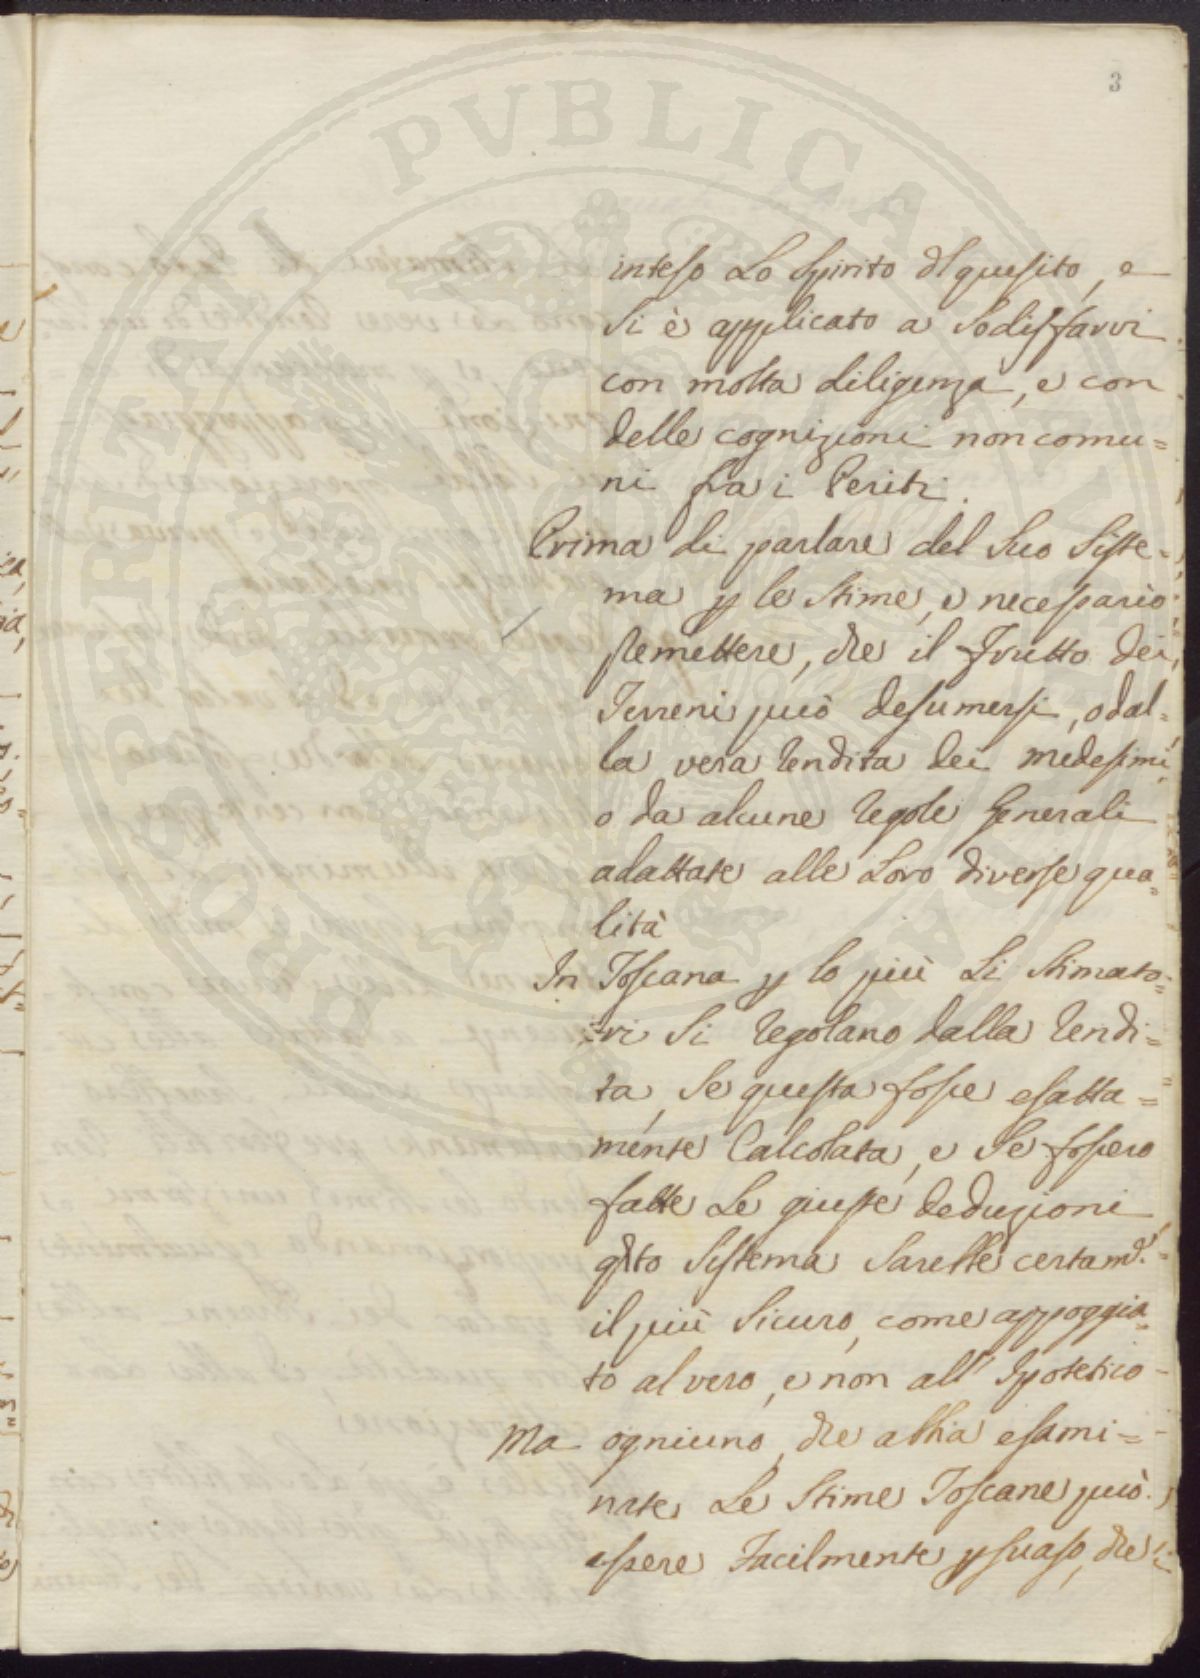 3
inteso Lo Spirito dl quesito, e
Si è applicato a Sodisfarvi
con molta diligenza, e con
delle cognizioni non comu=
ni fra i Periti.
Prima di parlare del Suo Siste=
ma p le Stime, e necessario
premettere, che il frutto dei
Terreni può desumersi, o dal=
la vera rendita dei medesimi
o da alcune regole Generali
adattate alle Loro diverse qua=
lità
In Toscana p lo più Li Stimato=
=ri Si regolano dalla rendi=
ta, Se questa fosse esatta=
mente Calcolata, e Se fossero
fatte Le giuste deduzioni
qsto Sistema Sarebbe certam.e
il più Sicuro, come appoggia=
to al vero, e non all' Ipotetico
Ma ogniuno, che abbia esami=
nate Le Stime Toscane può
essere Facilmente psuaso, che
PROSPERITATI PVBLICAE AVGENDAE